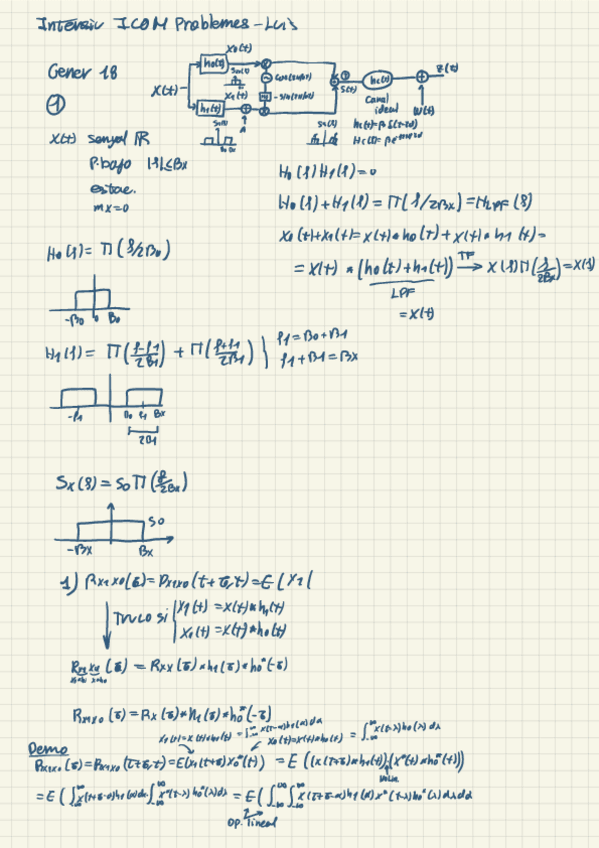 Intensiu ICOM Problemes - Luis
Gener 18
①
X(t)
h0(t)
X0(t)
h1(t)
X1(t)
cos(2πf0t)
-sin(2πf0t)
S(t)
hc(t)
Canal
ideal
hc(t)=βδ(t-τ0)
W(t)
Z(t)
X(t) senyal IR
P.bajo |f|≤Bx
estac.
mx=0
H0(f)H1(f)=0
H0(f)+H1(f) = Π(f/2Bx) = HLPF(f)
X0(t)+X1(t) = X(t)*h0(t) + X(t)*h1(t) =
= X(t) * (h0(t)+h1(t)) TF→ X(f)Π(f/2Bx) = X(f)
LPF
= X(t)
H0(f) = Π(f/2B0)
-B0 0 B0
H1(f) = Π((f-f1)/2B1) + Π((f+f1)/2B1) | f1 = B0+B1
f1+B1 = Bx
-f1 B0 f1 Bx
2B1
Sx(f) = S0 Π(f/2Bx)
S0
-Bx Bx
1) Rx1x0(τ) = Rx1x0(t+τ,t) = E(X1(
TRUCO si { X1(t) = X(t)*h1(t)
X0(t) = X(t)*h0(t)
Rx1x0(τ) = Rxx(τ)*h1(τ)*h0*(-τ)
Rx1x0(τ) = Rx(τ)*h1(τ)*h0*(-τ)
X1(t) = X(t)*h1(t) = ∫-∞^∞ X(t-α)h1(α)dα
X0(t) = X(t)*h0(t) = ∫-∞^∞ X(t-λ)h0(λ)dλ
Demo
Rx1x0(τ) = Rx1x0(t+τ,t) = E(X1(t+τ)X0*(t)) = E((X(t+τ)*h1(t))(X*(t)*h0*(t)))
= E(∫-∞^∞ X(t+τ-α)h1(α)dα ∫-∞^∞ X*(t-λ)h0*(λ)dλ) = E(∫-∞^∞ ∫-∞^∞ X(t+τ-α)h1(α)X*(t-λ)h0*(λ)dλdα
op. lineal